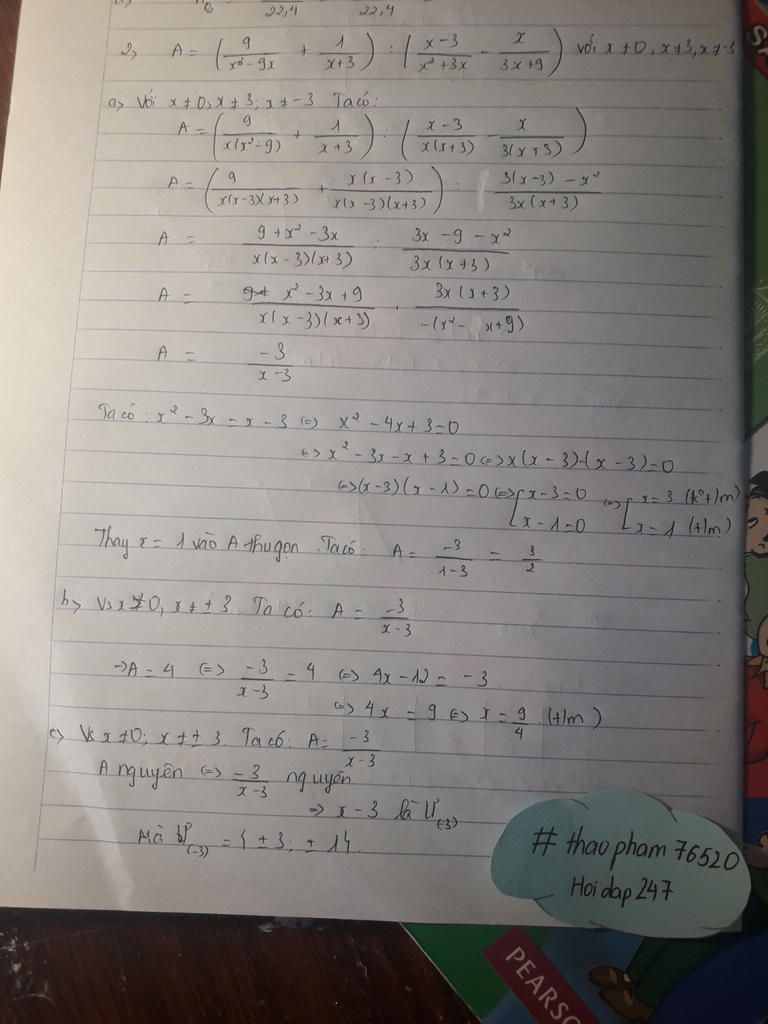 22,4 22,4
2, A = (9/(x³ - 9x) + 1/(x+3)) : ((x-3)/(x²+3x) - x/(3x+9)) với x ≠ 0, x ≠ 3, x ≠ -3
a, Với x ≠ 0; x ≠ 3; x ≠ -3 Ta có:
A = (9/(x(x²-9)) + 1/(x+3)) : ((x-3)/(x(x+3)) - x/(3(x+3)))
A = (9/(x(x-3)(x+3)) + x(x-3)/(x(x-3)(x+3))) : (3(x-3) - x²)/(3x(x+3))
A = (9 + x² - 3x)/(x(x-3)(x+3)) : (3x - 9 - x²)/(3x(x+3))
A = (x² - 3x + 9)/(x(x-3)(x+3)) . 3x(x+3)/(-(x² - x+9))
A = -3/(x-3)
Ta có: x² - 3x = x - 3 <=> x² - 4x + 3 = 0
<=> x² - 3x - x + 3 = 0 <=> x(x-3)-(x-3)=0
<=> (x-3)(x-1) = 0 <=> [x-3=0 <=> [x=3 (k°t/m)
x-1=0 x=1 (t/m)
Thay x = 1 vào A thu gọn. Ta có: A = -3/(1-3) = 3/2
b, Vs x ≠ 0, x ≠ ± 3. Ta có: A = -3/(x-3)
→A = 4 <=> -3/(x-3) = 4 <=> 4x - 12 = -3
<=> 4x = 9 <=> x = 9/4 (t/m)
c, Vs x ≠ 0; x ≠ ± 3. Ta có: A = -3/(x-3)
A nguyên <=> -3/(x-3) nguyên
=> x - 3 là Ư(-3)
Mà Ư(-3) = { ± 3; ± 1}.
# thao pham 76520
Hoi dap 247
PEARSO